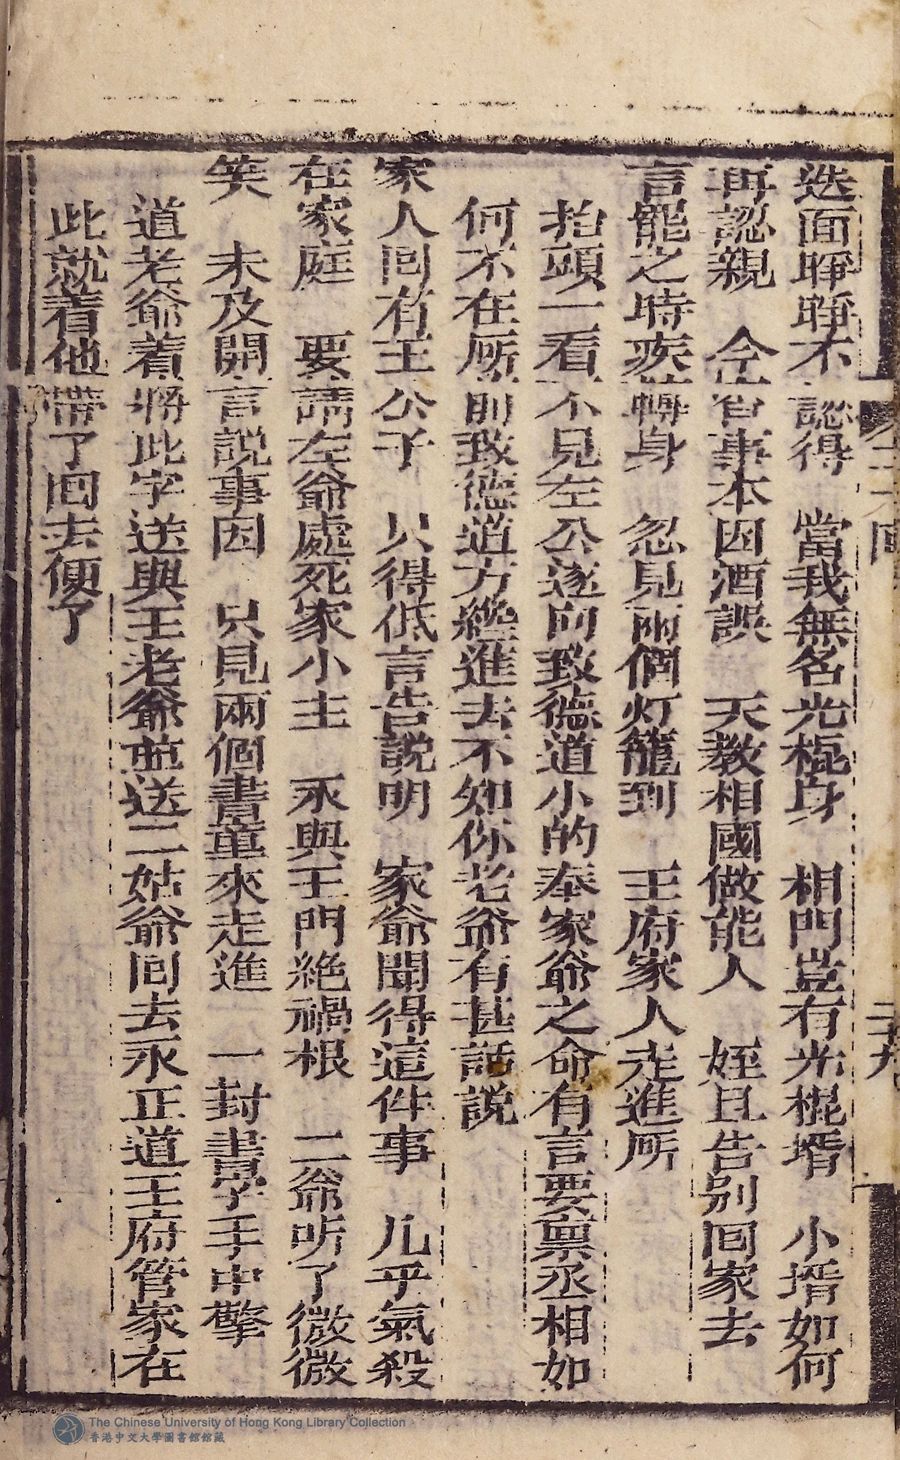 迯面睜睜不認得　當我無名光棍身　相門豈有光棍壻　小壻如何
再認親　今宵事本因酒誤　天教相國做能人　姪且告别囬家去
言罷之時疾轉身　忽見兩個灯籠到　王府家人走進所
抬頭一看不見左公遂向致德道小的奉家爺之命有言要禀丞相如
何不在所前致德道方纔進去不如你老爺有甚話説
家人囬有王公子　只得低言告説明　家爺聞得這件事　几乎氣殺
在家庭　要請左爺處死家小主　永與王門絶禍根　二爺听了微微
笑　未及開言説事因　只見兩個書童來走進　一封書子手中擎
道老爺着將此字送與王老爺並送二姑爺囬去永正道王府管家在
此就着他帶了囬去便了
二十九
The Chinese University of Hong Kong Library Collection
香港中文大學圖書館館藏